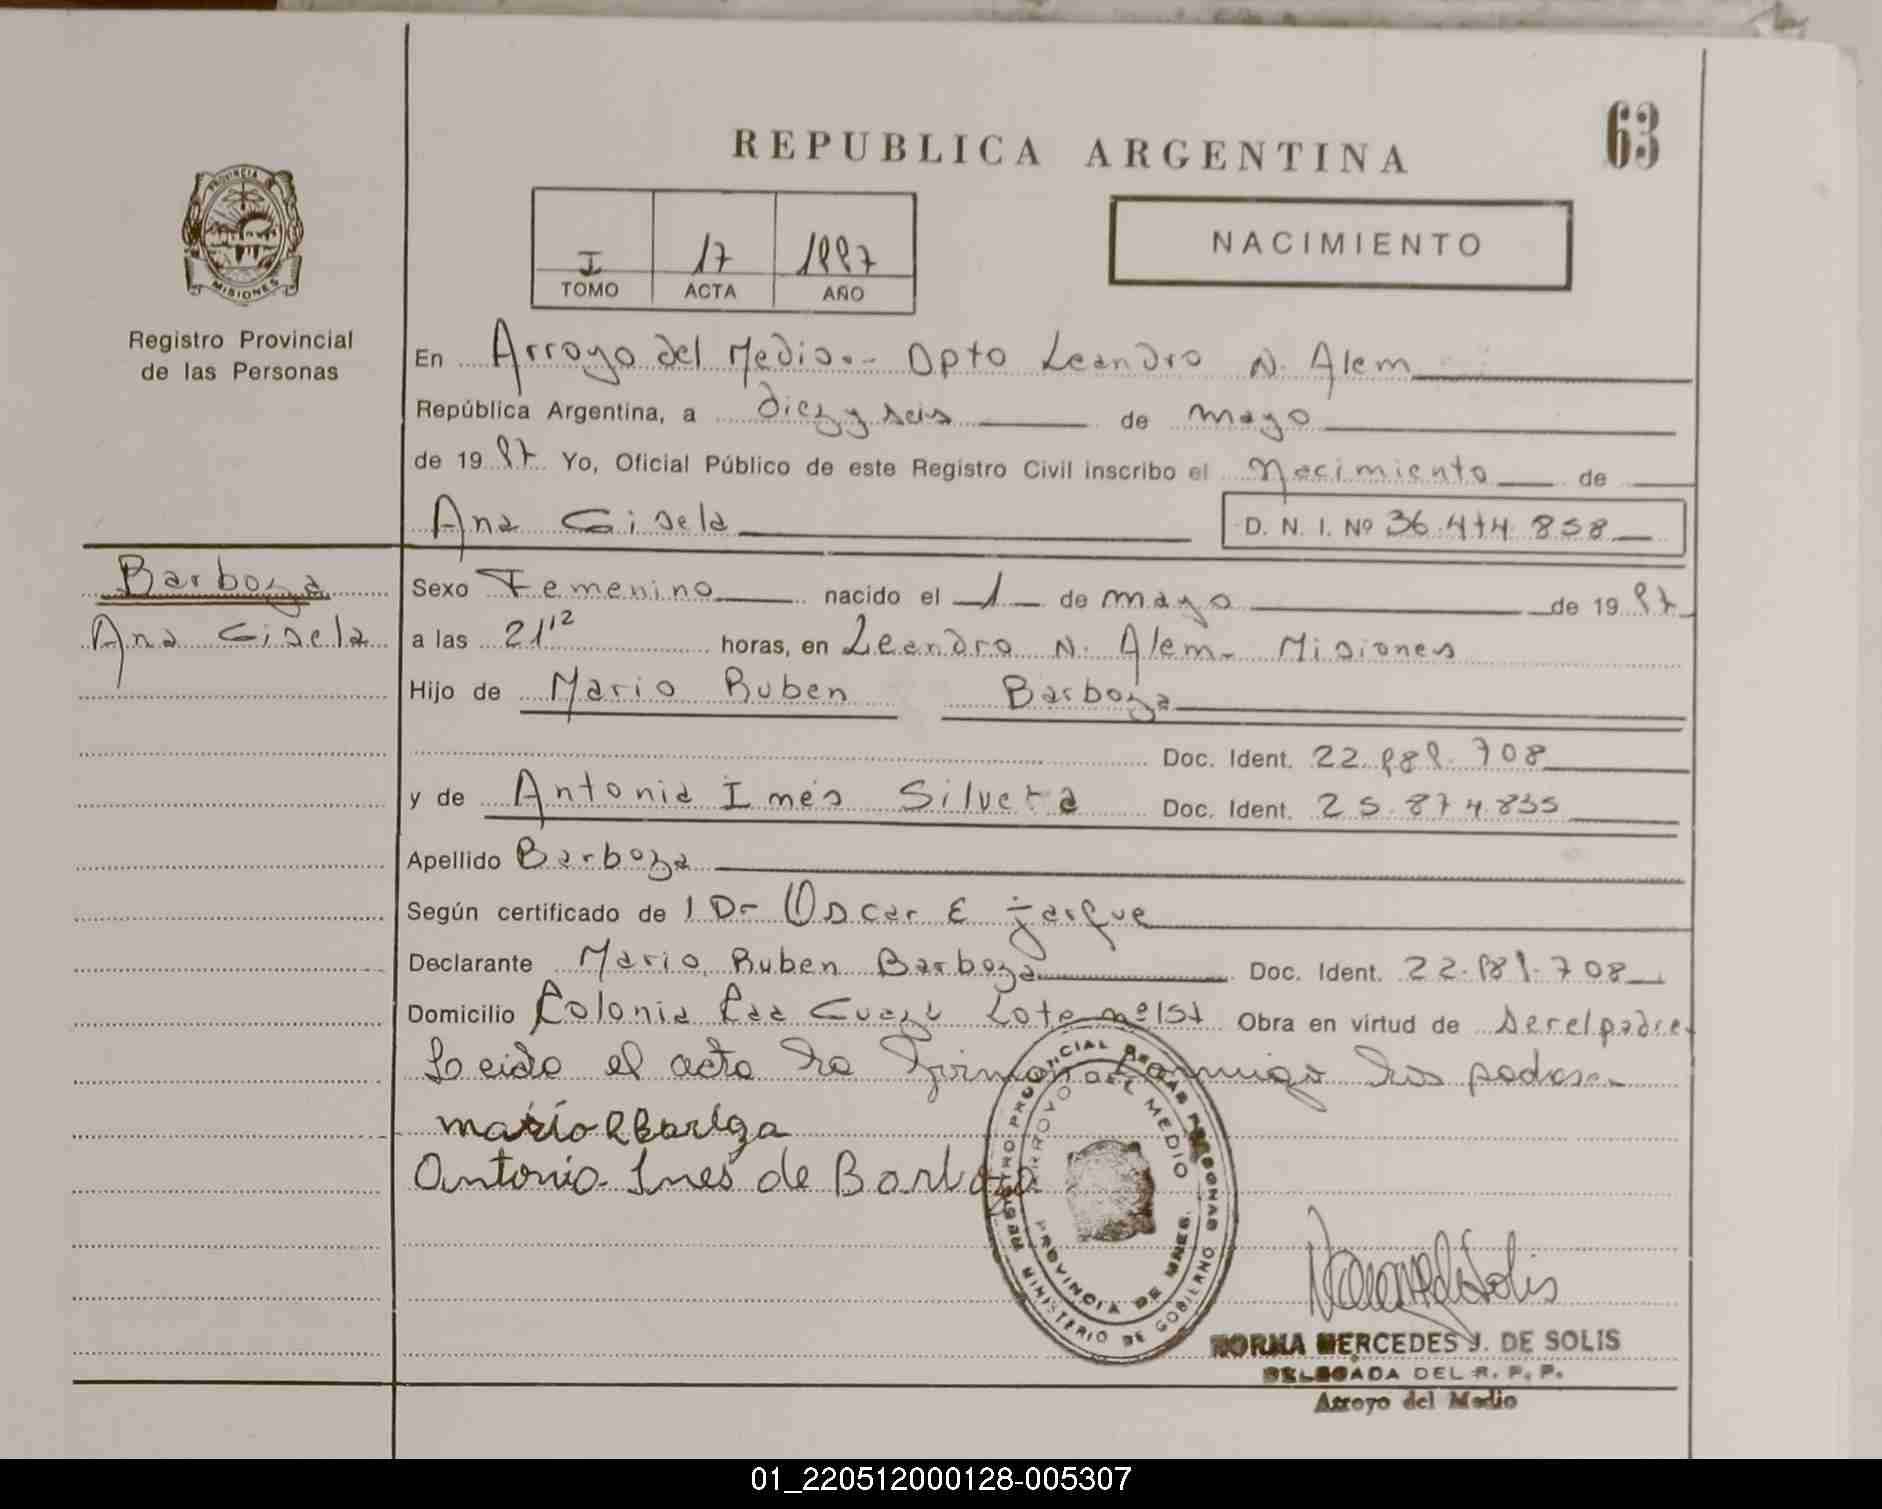 63
REPUBLICA ARGENTINA
PROVINCIA DE MISIONES
Registro Provincial
de las Personas
I 17 1997
TOMO ACTA AÑO
NACIMIENTO
En Arroyo del Medio.- Dpto Leandro N. Alem
República Argentina, a diez y seis de mayo
de 19 97 Yo, Oficial Público de este Registro Civil inscribo el Nacimiento de
Ana Gisela D. N. I. Nº 36.474.858
Barboza
Ana Gisela
Sexo Femenino nacido el 1 de mayo de 19 97
a las 21'12 horas, en Leandro N. Alem - Misiones
Hijo de Mario Ruben Barboza
Doc. Ident. 22.989.708
y de Antonia Inés Silvera Doc. Ident. 25.874.835
Apellido Barboza
Según certificado de Dr Oscar E Jarque
Declarante Mario Ruben Barboza Doc. Ident. 22.989.708
Domicilio Colonia Caa Guazu Lote nº 151 Obra en virtud de ser el padre
Leido el acta la firman conmigo los padres.-
Mario R Barboza
Antonia Ines de Barboza
REGISTRO PROVINCIAL DE LAS PERSONAS
MINISTERIO DE GOBIERNO
ARROYO DEL MEDIO
PROVINCIA DE MNES.
NORMA MERCEDES J. DE SOLIS
DELEGADA DEL R. P. P.
Arroyo del Medio
01_220512000128-005307